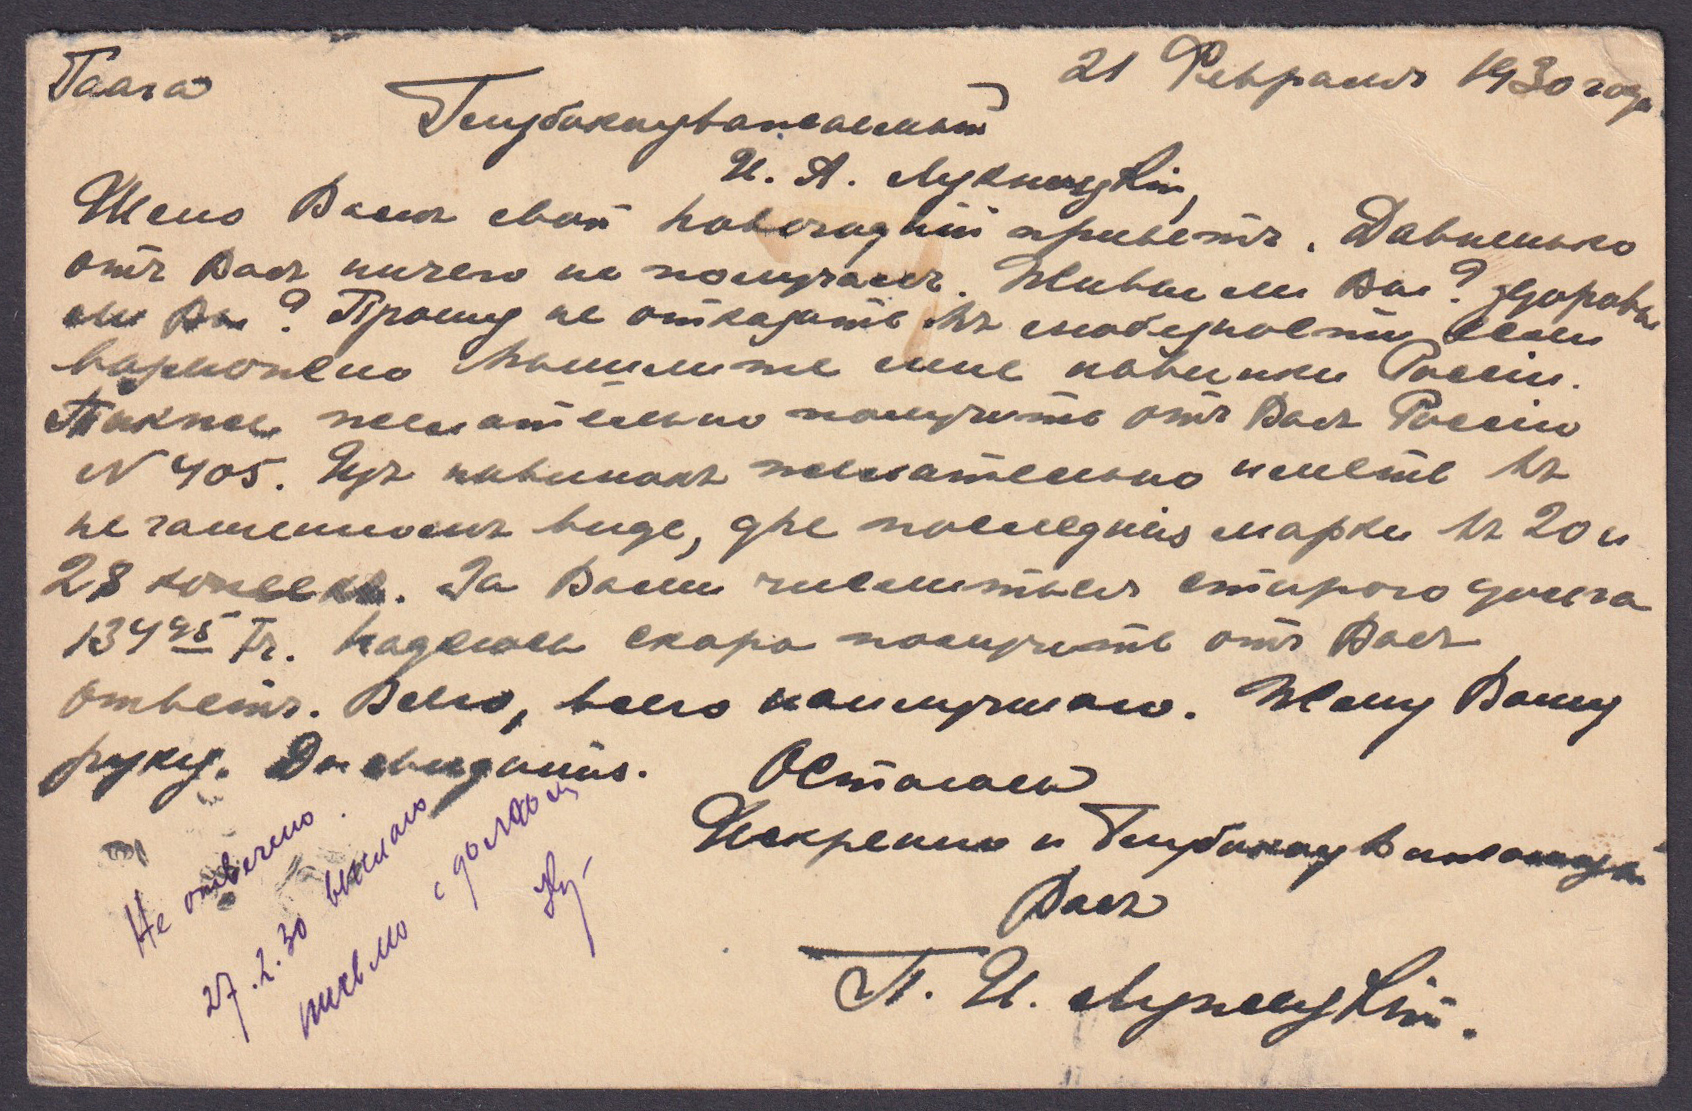 Гаага
21 Февраля 1930 года.
Глубокоуважаемый
И. А.
Шлю Вамъ свой новогодній приветъ. Давненько
отъ Васъ ничего не получалъ. Живы ли Вы? здоровы
ли Вы? Прошу не отказать въ любезности если
возможно вышлите мне новинки Россіи.
Также желательно получить отъ Васъ Россію
N 405. Изъ новинокъ желательно иметь въ
негашенномъ виде, две последнія марки въ 20 и
28 копеекъ. За Вами числиться старого долга
134 95 Fr. Надеюсь скоро получить отъ Васъ
ответъ. Всего, всего наилучшаго. Жму Вашу
руку. До свиданія.
Остаюсь
Искренно и Глубокоуважающій
Васъ
П. И.
Не отвечено.
27.2.30 выслано
письмо с долгом